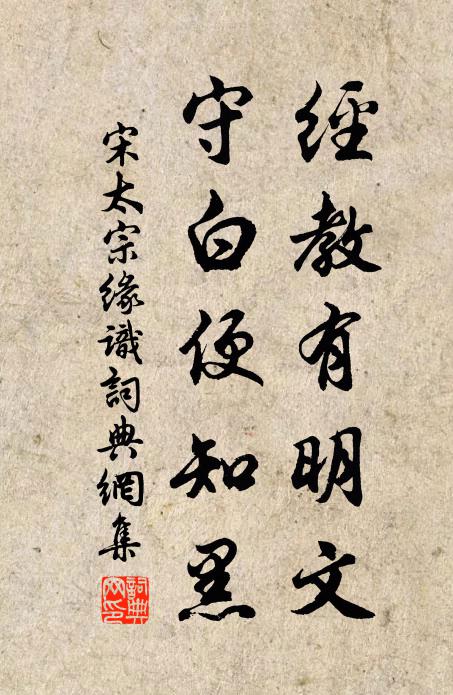 經教有明文
守白便知黑
宋太宗緣識詞典網集
詞典網印